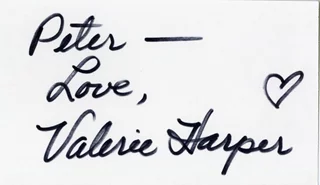 Peter —
Love,
Valerie Harper